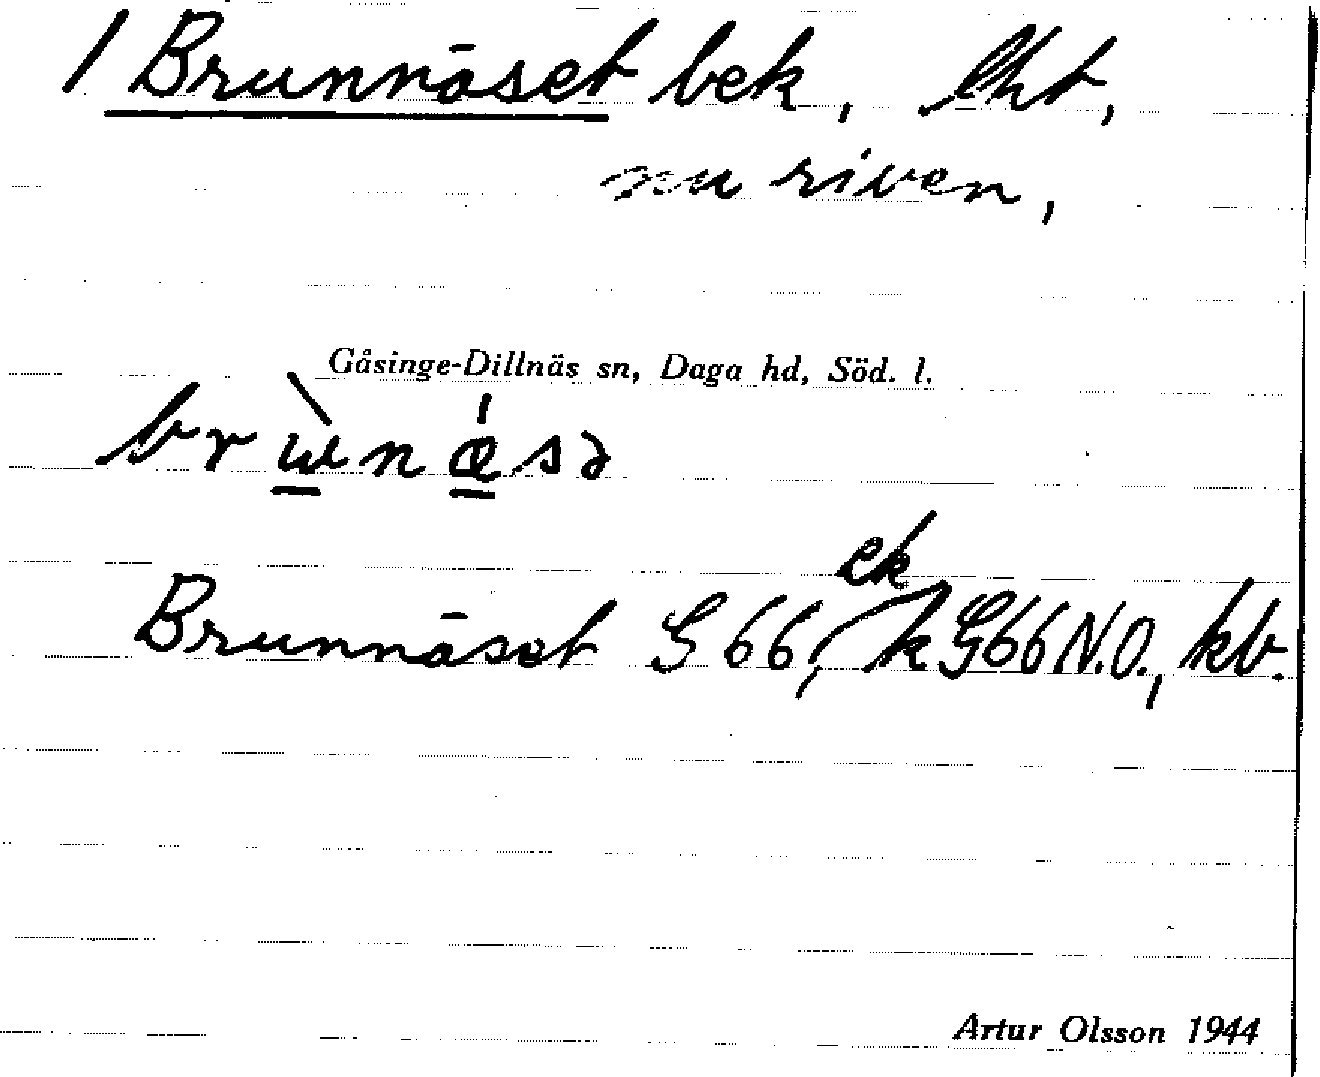 / Brunnäset bek, lht,
nu riven,
Gåsinge-Dillnäs sn, Daga hd, Söd. l.
brɯ̀nǽsə
ek
Brunnäset G 66, k G66 N.O., kb.
Artur Olsson 1944